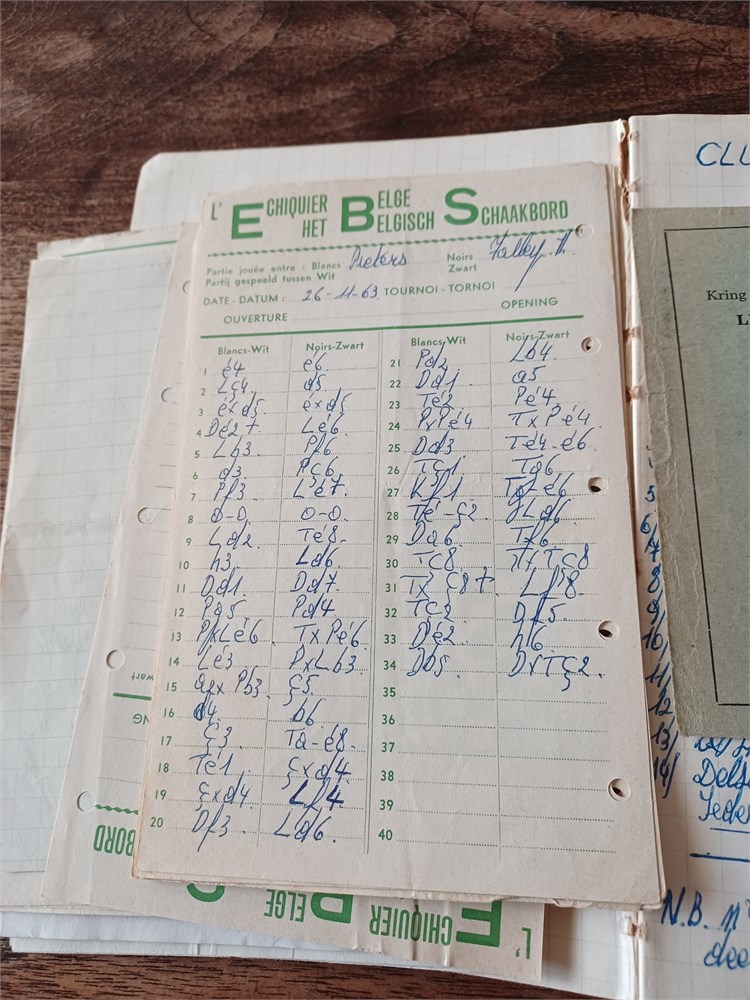 L'ECHIQUIER BELGE
HET BELGISCH SCHAAKBORD
Partie jouée entre : Blancs Pieters Noirs
Partij gespeeld tussen Wit Zwart
DATE - DATUM : 26-11-63 TOURNOI - TORNOI
OUVERTURE OPENING
Blancs-Wit Noirs-Zwart
1 é4 é6
2 Lç4 d5
3 éxd5 éxd5
4 Dé2+ Lé6
5 Lb3 Pf6
6 d3 Pç6
7 Pf3 Lé7
8 0-0 0-0
9 Ld2 Té8
10 h3 Ld6
11 Dd1 Dd7
12 Pg5 Pd4
13 PxLé6 TxPé6
14 Lé3 PxLb3
15 axPb3 ç5
16 d4 b6
17 ç3 Ta-é8
18 Té1 çxd4
19 çxd4 Lf4
20 Df3 Ld6
Blancs-Wit Noirs-Zwart
21 Pd2 Lb4
22 Dd1 a5
23 Té2 Pé4
24 PxPé4 TxPé4
25 Dd3 Té4-é6
26 Tç1 Tg6
27 Kf1 Tg-é6
28 Té-ç2 Ld6
29 Da6 Tf6
30 Tç8 TxTç8
31 Txç8+ Lf8
32 Tç2 Df5
33 Dé2 h6
34 Db5 DxTç2
35
36
37
38
39
40
CLU
Kring
N.B.
L'ECHIQUIER BELGE
BORD
Zwart